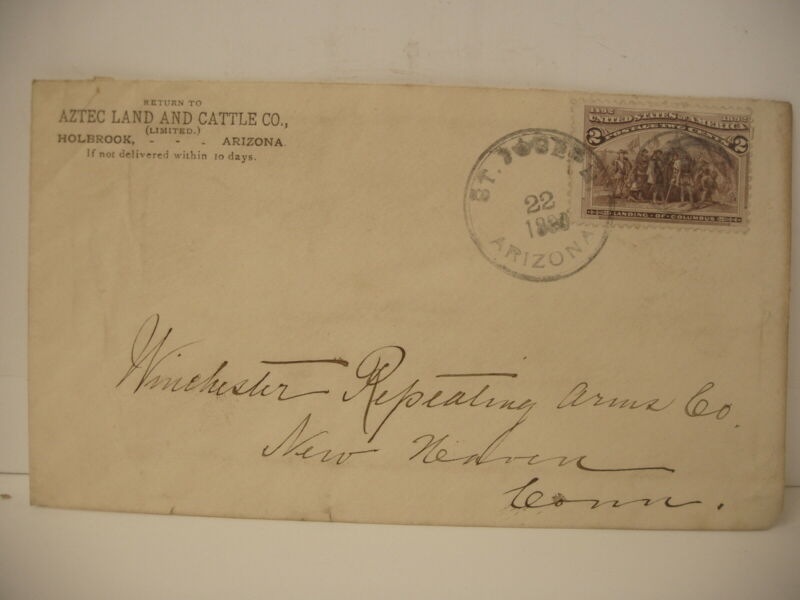 RETURN TO
AZTEC LAND AND CATTLE CO.,
(LIMITED.)
HOLBROOK, - - - ARIZONA.
If not delivered within 10 days.
1492 1892
UNITED STATES OF AMERICA
2 POSTAGE TWO CENTS 2
LANDING OF COLUMBUS
ST. JOSEPH
22
ARIZONA
Winchester Repeating Arms Co.
New Haven
Conn.